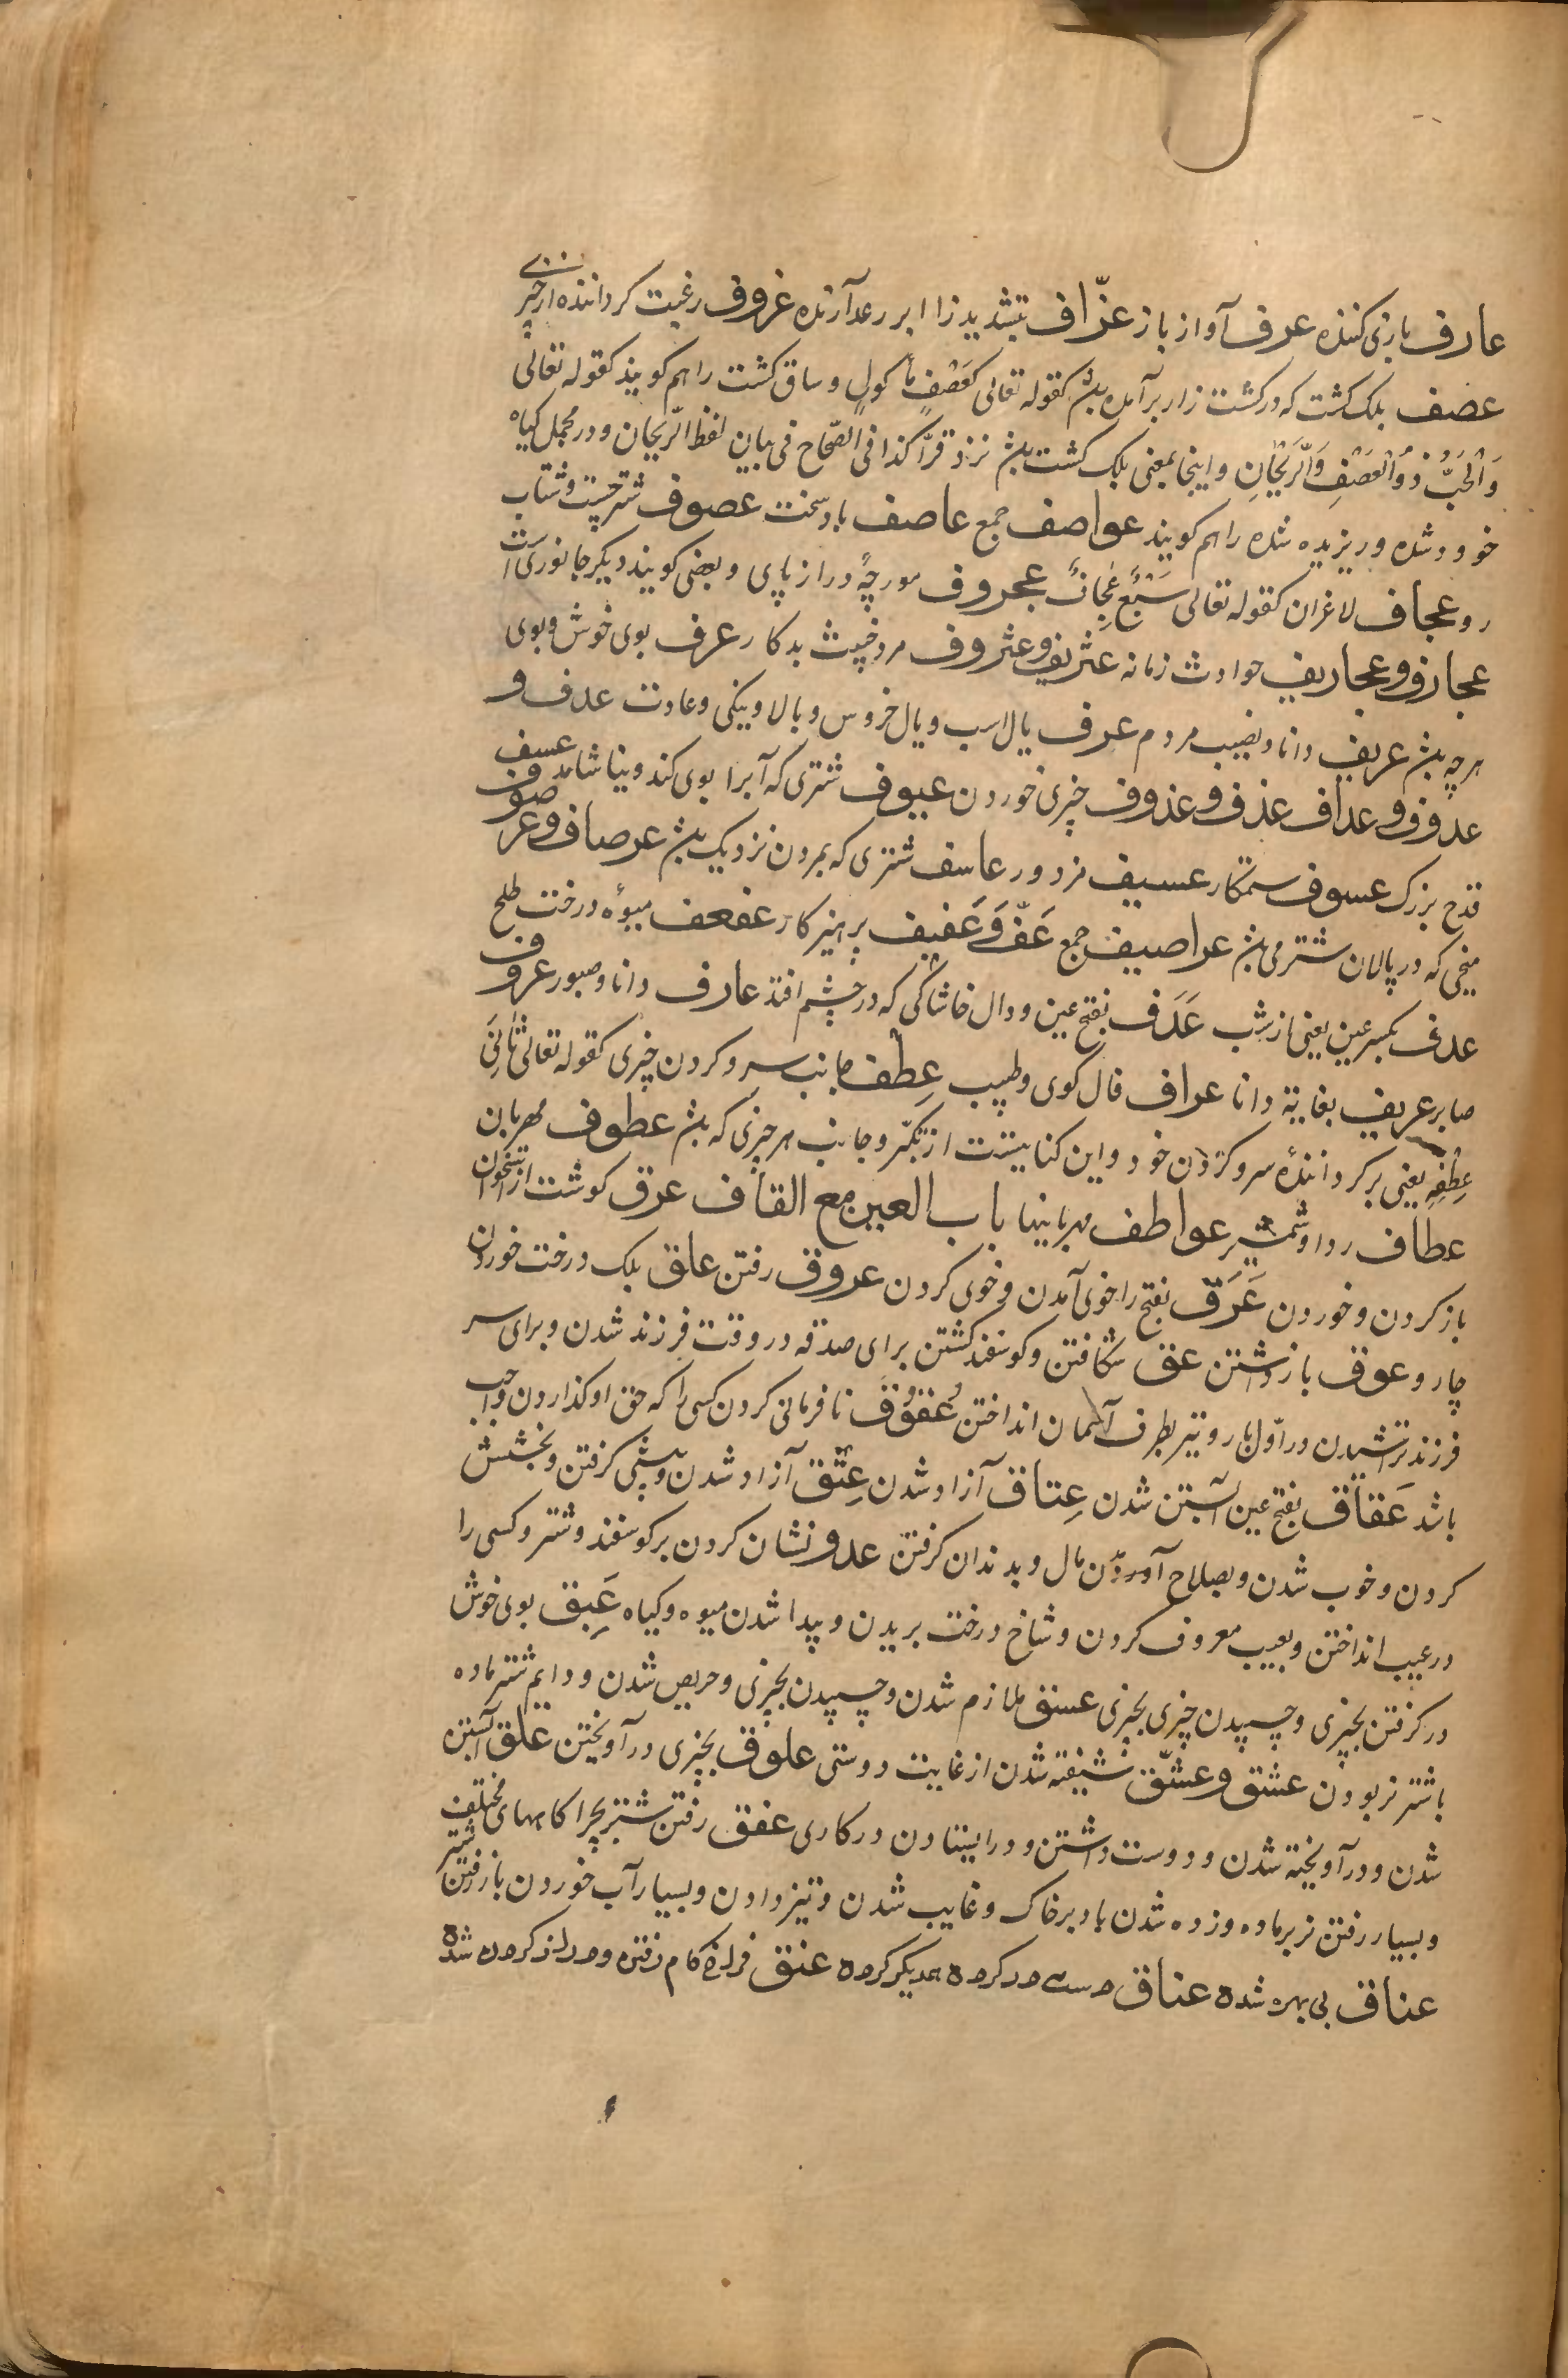 عارف بازی کننده عرف آواز باز عزّاف بتشدید زا ابر رعد آرنده عروف رغبت کرداننده از چیزی
عصف بلک کشت که در کشت زار برآمده باشد کقوله تعالی کَعَصْفٍ مأکولٍ و ساق کشت را هم کویند کقوله تعالی
وَالْحَبُّ ذُو الْعَصْفِ وَالرَّیْحَانِ و اینجا بمعنی بلک کشت باشد نزد فرّا کذا فی الصّحاح فی بیان لفظ الرّیحان و در مجمل کیاه
خوود شده و ریزیده شده را هم کویند عواصف جمع عاصف باد سخت عصوف شتر چست و شتاب
رو عجاف لاغران کقوله تعالی سَبْعٌ عِجَافٌ عجروف مورچهٔ دراز پای و بعضی کویند دیکر جانوریست
عجارف و عجاریف حوادث زمانه عثریف و عثروف مرد خبیث بدکار عرف بوی خوش و بوی
هرچه باشد عریف دانا و نقیب مردم عرف یال اسب و یال خروس و بالا و نیکی و عادت عدف و
عدوف و عداف عذف و عذوف چیزی خوردن عیوف شتری که آبرا بوی کند و نیاشامد عسف
قدح بزرک عسوف ستمکار عسیف مزدور عاسف شتری که بمردن نزدیک باشد عرصاف و عرصوف
میخی که در پالان شتر می باشد عراصیف جمع عَفّ وَ عَفیف پرهیز کار عفعف میوهٔ درخت طلح
عدف بکسر عین یعنی از شب عَدَف بفتح عین و دال خاشاکی که در چشم افتد عارف دانا و صبور عروف
صابر عریف بغایة دانا عراف فال کوی و طبیب عِطف جانب سر و کردن چیزی کقوله تعالی ثَانِیَ
عِطْفِهِ یعنی بر کردانندهٔ سر و کردن خود و این کنایتست از تکبّر و جانب هر چیزی که باشد عطوف مهربان
عطاف ردا و شمشیر عواطف مهربانیها باب العین مع القاف عرق کوشت از استخوان
باز کردن و خوردن عَرَق بفتح را خوی آمدن و خوی کردن عروق رفتن علق بلک درخت خوردن
چار و عوق باز داشتن عق شکافتن و کوسفند کشتن برای صدقه در وقت فرزند شدن و برای سر
فرزند تراشیدن در اوّل بار و تیر بطرف آسمان انداختن عُقوُق نافرمانی کردن کسی را که حق او کذاردن واجب
باشد عَقاق بفتح عین آبستن شدن عِتاق آزاد شدن عِتْق آزاد شدن و پیشی کرفتن و بخشش
کردن و خوب شدن و بصلاح آوردن مال و بدندان کرفتن عدو نشان کردن بر کوسفند و شتر و کسی را
در عیب انداختن و بعیب معروف کردن و شاخ درخت بریدن و پیدا شدن میوه و کیاه عَبِق بوی خوش
در کرفتن بچیزی و چسپیدن چیزی بچیزی عسق ملازم شدن و چسپیدن بچیزی و حریص شدن و دایم شتر ماده
با شتر نر بودن عشق و عشّق شیفته شدن از غایت دوستی علوق بچیزی در آویختن علق آبستن
شدن و در آویخته شدن و دوست داشتن و در ایستادن در کاری عفق رفتن شتر بچراکاههای مختلف
و بسیار رفتن نر بر ماده و زده شدن باد بر خاک و غایب شدن و تیز دادن و بسیار آب خوردن باز رفتن شتر
عناق بی بهره شده عناق دست در کردن همدیکر کردن عنق فراخ کام رفتن و دراز کردن شده